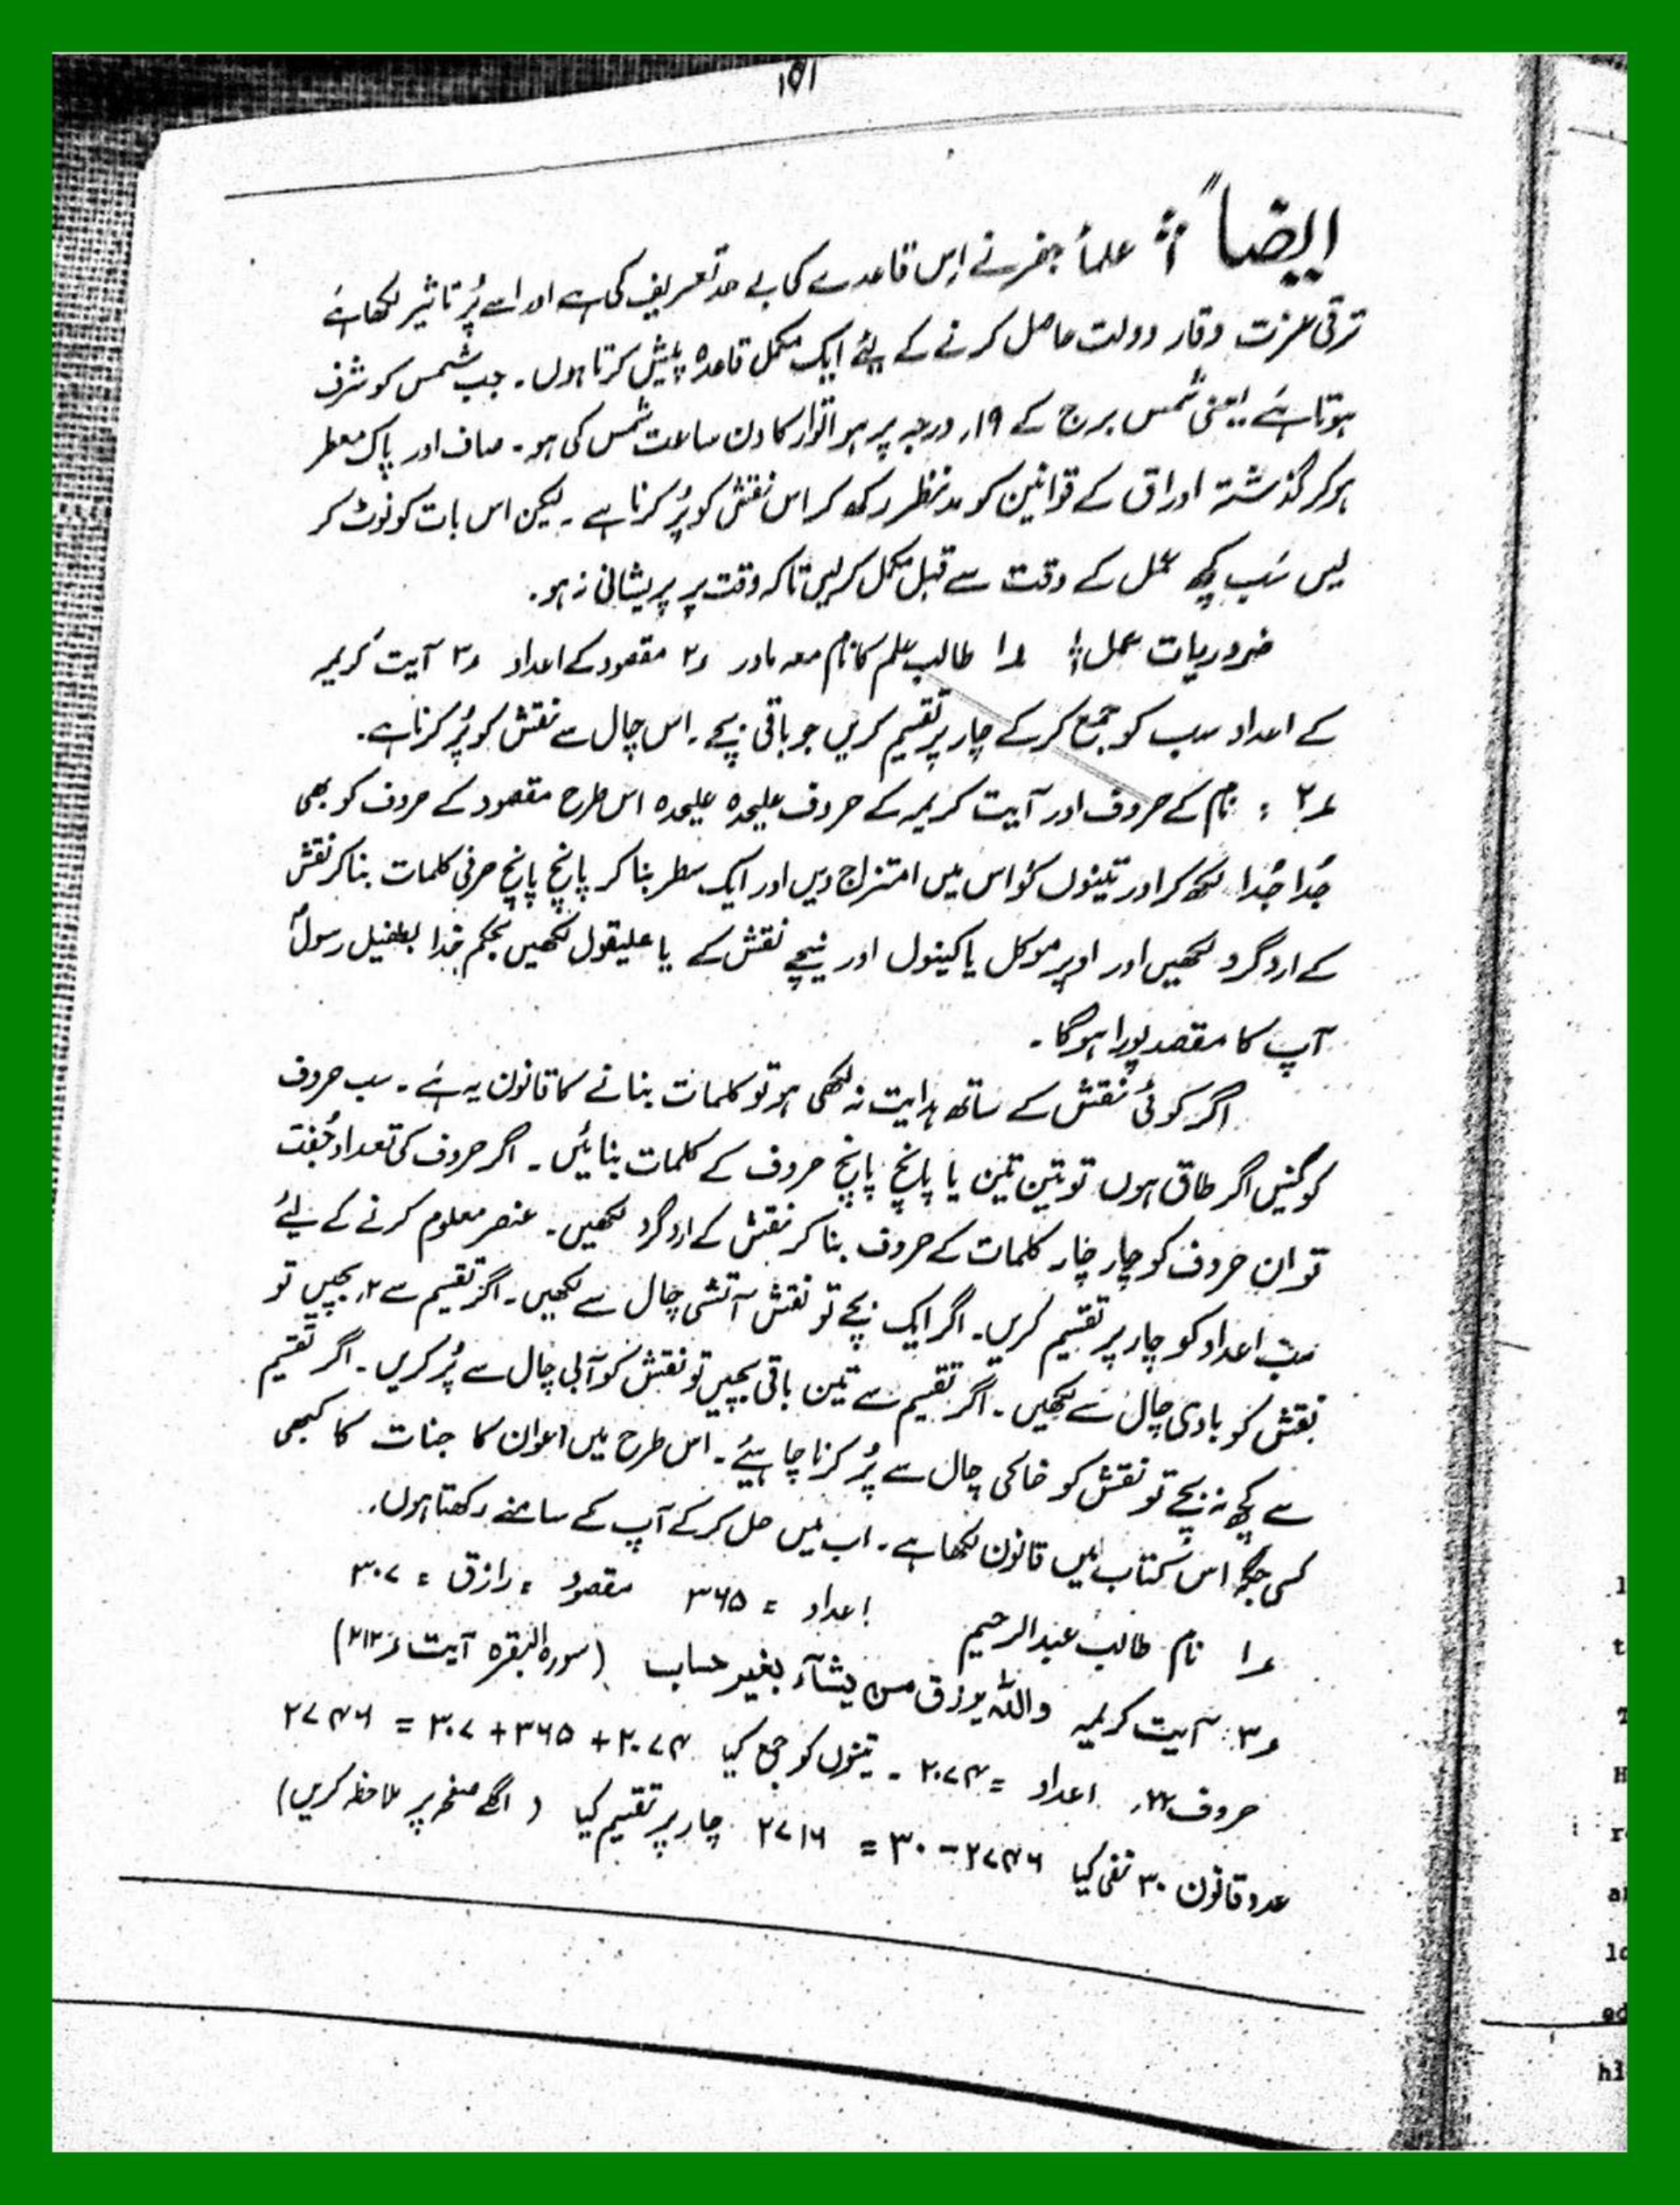 ۱۵۱
ایضاً ؛ علمأ جفر نے اِس قاعدے کی بے حد تعریف کی ہے اور اسے پُر تاثیر لکھا ہے
ترقی عزت وقار دولت حاصل کرنے کے لئے ایک مکمل قاعدہ پیش کرتا ہوں۔ جب شمس کو شرف
ہوتا ہے یعنی شمس برج کے ۱۹ درجہ پر ہو اتوار کا دن ساعت شمس کی ہو۔ صاف اور پاک معطر
ہو کر گذشتہ اوراق کے قوانین کو مدنظر رکھ کر اس نقش کو پُر کرنا ہے ۔ لیکن اس بات کو نوٹ کر
لیں سب کچھ عمل کے وقت سے قبل مکمل کر لیں تاکہ وقت پر پریشانی نہ ہو۔
ضروریات عمل؛ ؍۱ طالب علم کا نام معہ مادر ؍۲ مقصود کے اعداد ؍۳ آیت کریمہ
کے اعداد سب کو جمع کر کے چار پر تقسیم کریں جو باقی بچے ۔ اس چال سے نقش کو پُر کرنا ہے۔
؍۲ : نام کے حروف اور آیت کریمہ کے حروف علیحدہ علیحدہ اس طرح مقصود کے حروف کو بھی
جُدا جُدا لکھ کر اور تینوں کو اس میں امتزاج دیں اور ایک سطر بنا کر پانچ پانچ حرفی کلمات بنا کر نقش
کے اردگرد لکھیں اور اوپر موکل یا کینول اور نیچے نقش کے یا علیقول لکھیں بحکم خدا بطفیل رسولؐ
آپ کا مقصد پورا ہوگا ۔
اگر کوئی نقش کے ساتھ ہدایت نہ لکھی ہو تو کلمات بنانے کا قانون یہ ہے ۔ سب حروف
کو گنیں اگر طاق ہوں تو تین تین یا پانچ پانچ حروف کے کلمات بنائیں ۔ اگر حروف کی تعداد جُفت
تو ان حروف کو چار چار کلمات کے حروف بنا کر نقش کے اردگرد لکھیں۔ عنصر معلوم کرنے کے لئے
سب اعداد کو چار پر تقسیم کریں۔ اگر ایک بچے تو نقش آتشی چال سے لکھیں۔ اگر تقسیم سے ۲ بچیں تو
نقش کو بادی چال سے لکھیں ۔ اگر تقسیم سے تین باقی بچیں تو نقش کو آبی چال سے پُر کریں ۔ اگر تقسیم
سے کچھ نہ بچے تو نقش کو خاکی چال سے پُر کرنا چاہیئے ۔ اس طرح میں اعوان کا جنات کا کبھی
کسی جگہ اس کتاب میں قانون لکھا ہے ۔ اب میں حل کر کے آپ کے سامنے رکھتا ہوں۔
؍۱ نام طالب عبدالرحیم اعداد = ۳۶۵ مقصود = رازق = ۳۰۷
؍۳: آیت کریمہ واللہ یرزق من یشآء بغیر حساب (سورہ البقرہ آیت ؍۲۱۲)
حروف ۲۲، اعداد = ۲۰۷۴ ۔ تینوں کو جمع کیا ۲۰۷۴ + ۳۶۵ + ۳۰۷ = ۲۷۴۶
عدد قانون ۳۰ نفی کیا ۲۷۴۶ - ۳۰ = ۲۷۱۶ چار پر تقسیم کیا ( اگلے صفحہ پر ملاحظہ کریں)